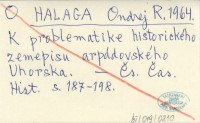 O HALAGA Ondrej R. 1964.
K problematike historického
zemepisu arpádovského
Uhorska. – Čs. Čas.
Hist. s. 187-198.